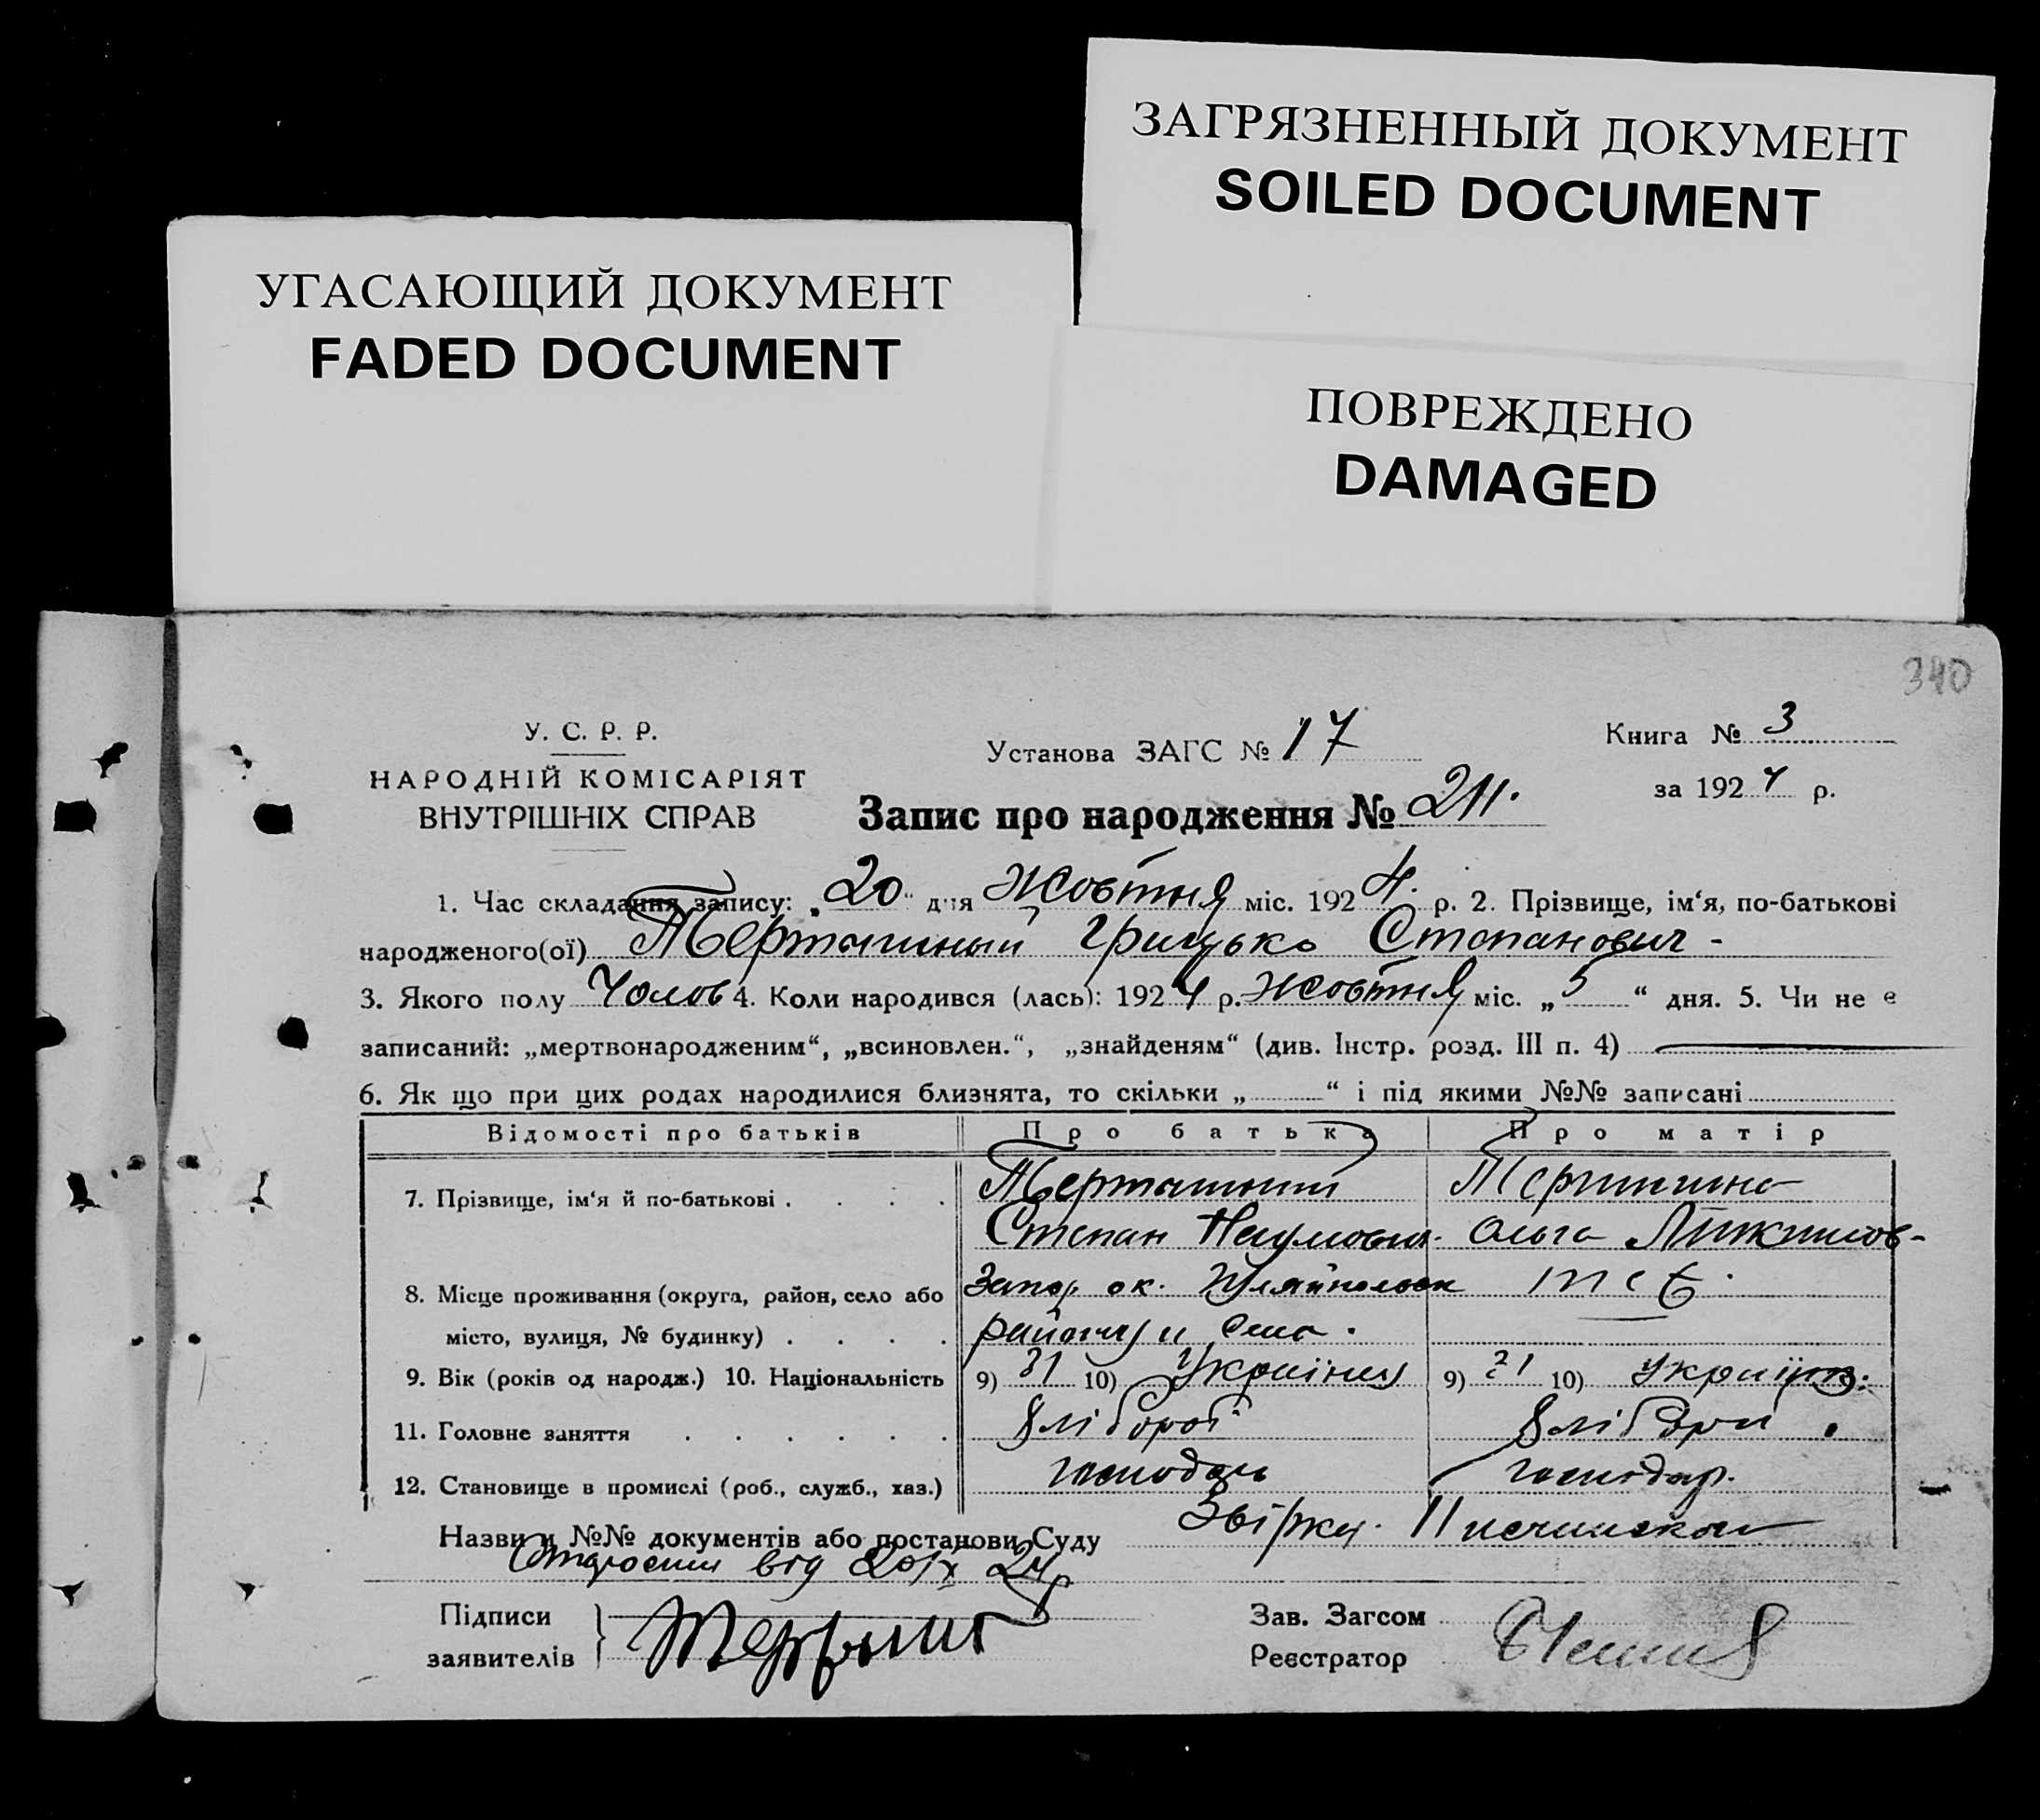 ЗАГРЯЗНЕННЫЙ ДОКУМЕНТ
SOILED DOCUMENT
УГАСАЮЩИЙ ДОКУМЕНТ
FADED DOCUMENT
ПОВРЕЖДЕНО
DAMAGED
340
У. С. Р. Р.
НАРОДНІЙ КОМІСАРІЯТ
ВНУТРІШНІХ СПРАВ
Установа ЗАГС № 17
Книга № 3
за 1924 р.
Запис про народження № 211.
1. Час складання запису: „20“ дня Жовтня міс. 1924. р. 2. Прізвище, ім‘я, по-батькові
народженого(ої) Грицько Степанович -
3. Якого полу Чолов 4. Коли народився (лась): 1924 р. Жовтня міс. „5“ дня. 5. Чи не е
записаний: „мертвонародженим“, „всиновлен.“, „знайденям“ (див. Інстр. розд. III п. 4)
6. Як що при цих родах народилися близнята, то скільки „ “ і під якими №№ записані
Відомості про батьків Про батька Про матір
7. Прізвище, ім‘я й по-батькові
Степан Наумович. Ольга
8. Місце проживання (округа, район, село або Запор ок. теж.
місто, вулиця, № будинку) району и село.
9. Вік (років од народж.) 10. Національність 9) 31 10) Українец 9) 21 10) Україн.
11. Головне заняття хлібороб хлібороб
12. Становище в промислі (роб., служб., хаз.) господарь господар.
Назви и №№ документів або постанови Суду
від 20/X 24р
Підписи
заявителів
Зав. Загсом
Реєстратор